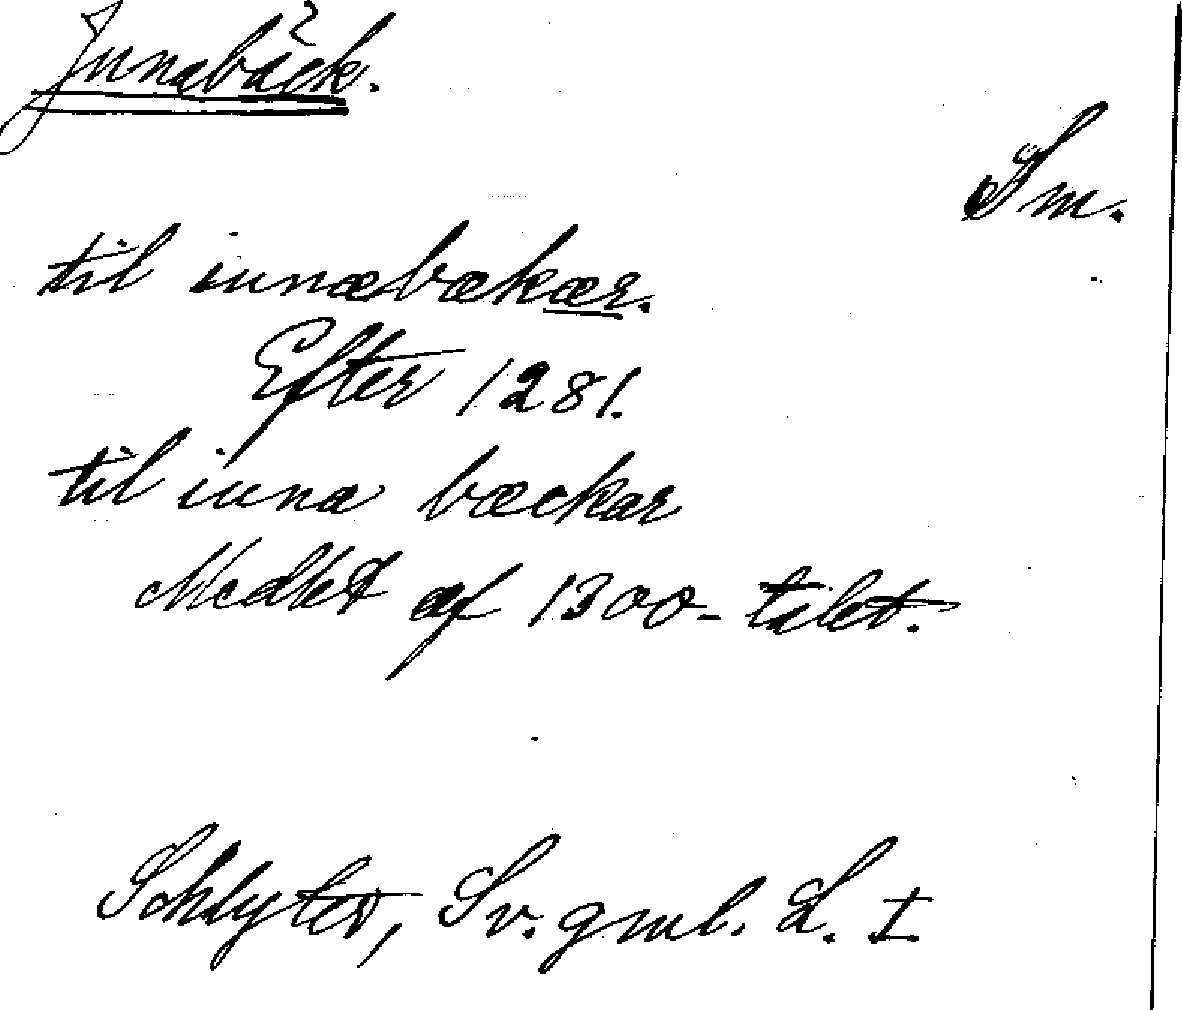 Junabäck.
Sm.
til iunæbækær.
Efter 1281.
til iuna bæckar
Medlet af 1300-talet.
Schlyter, Sv. gml. L. I.